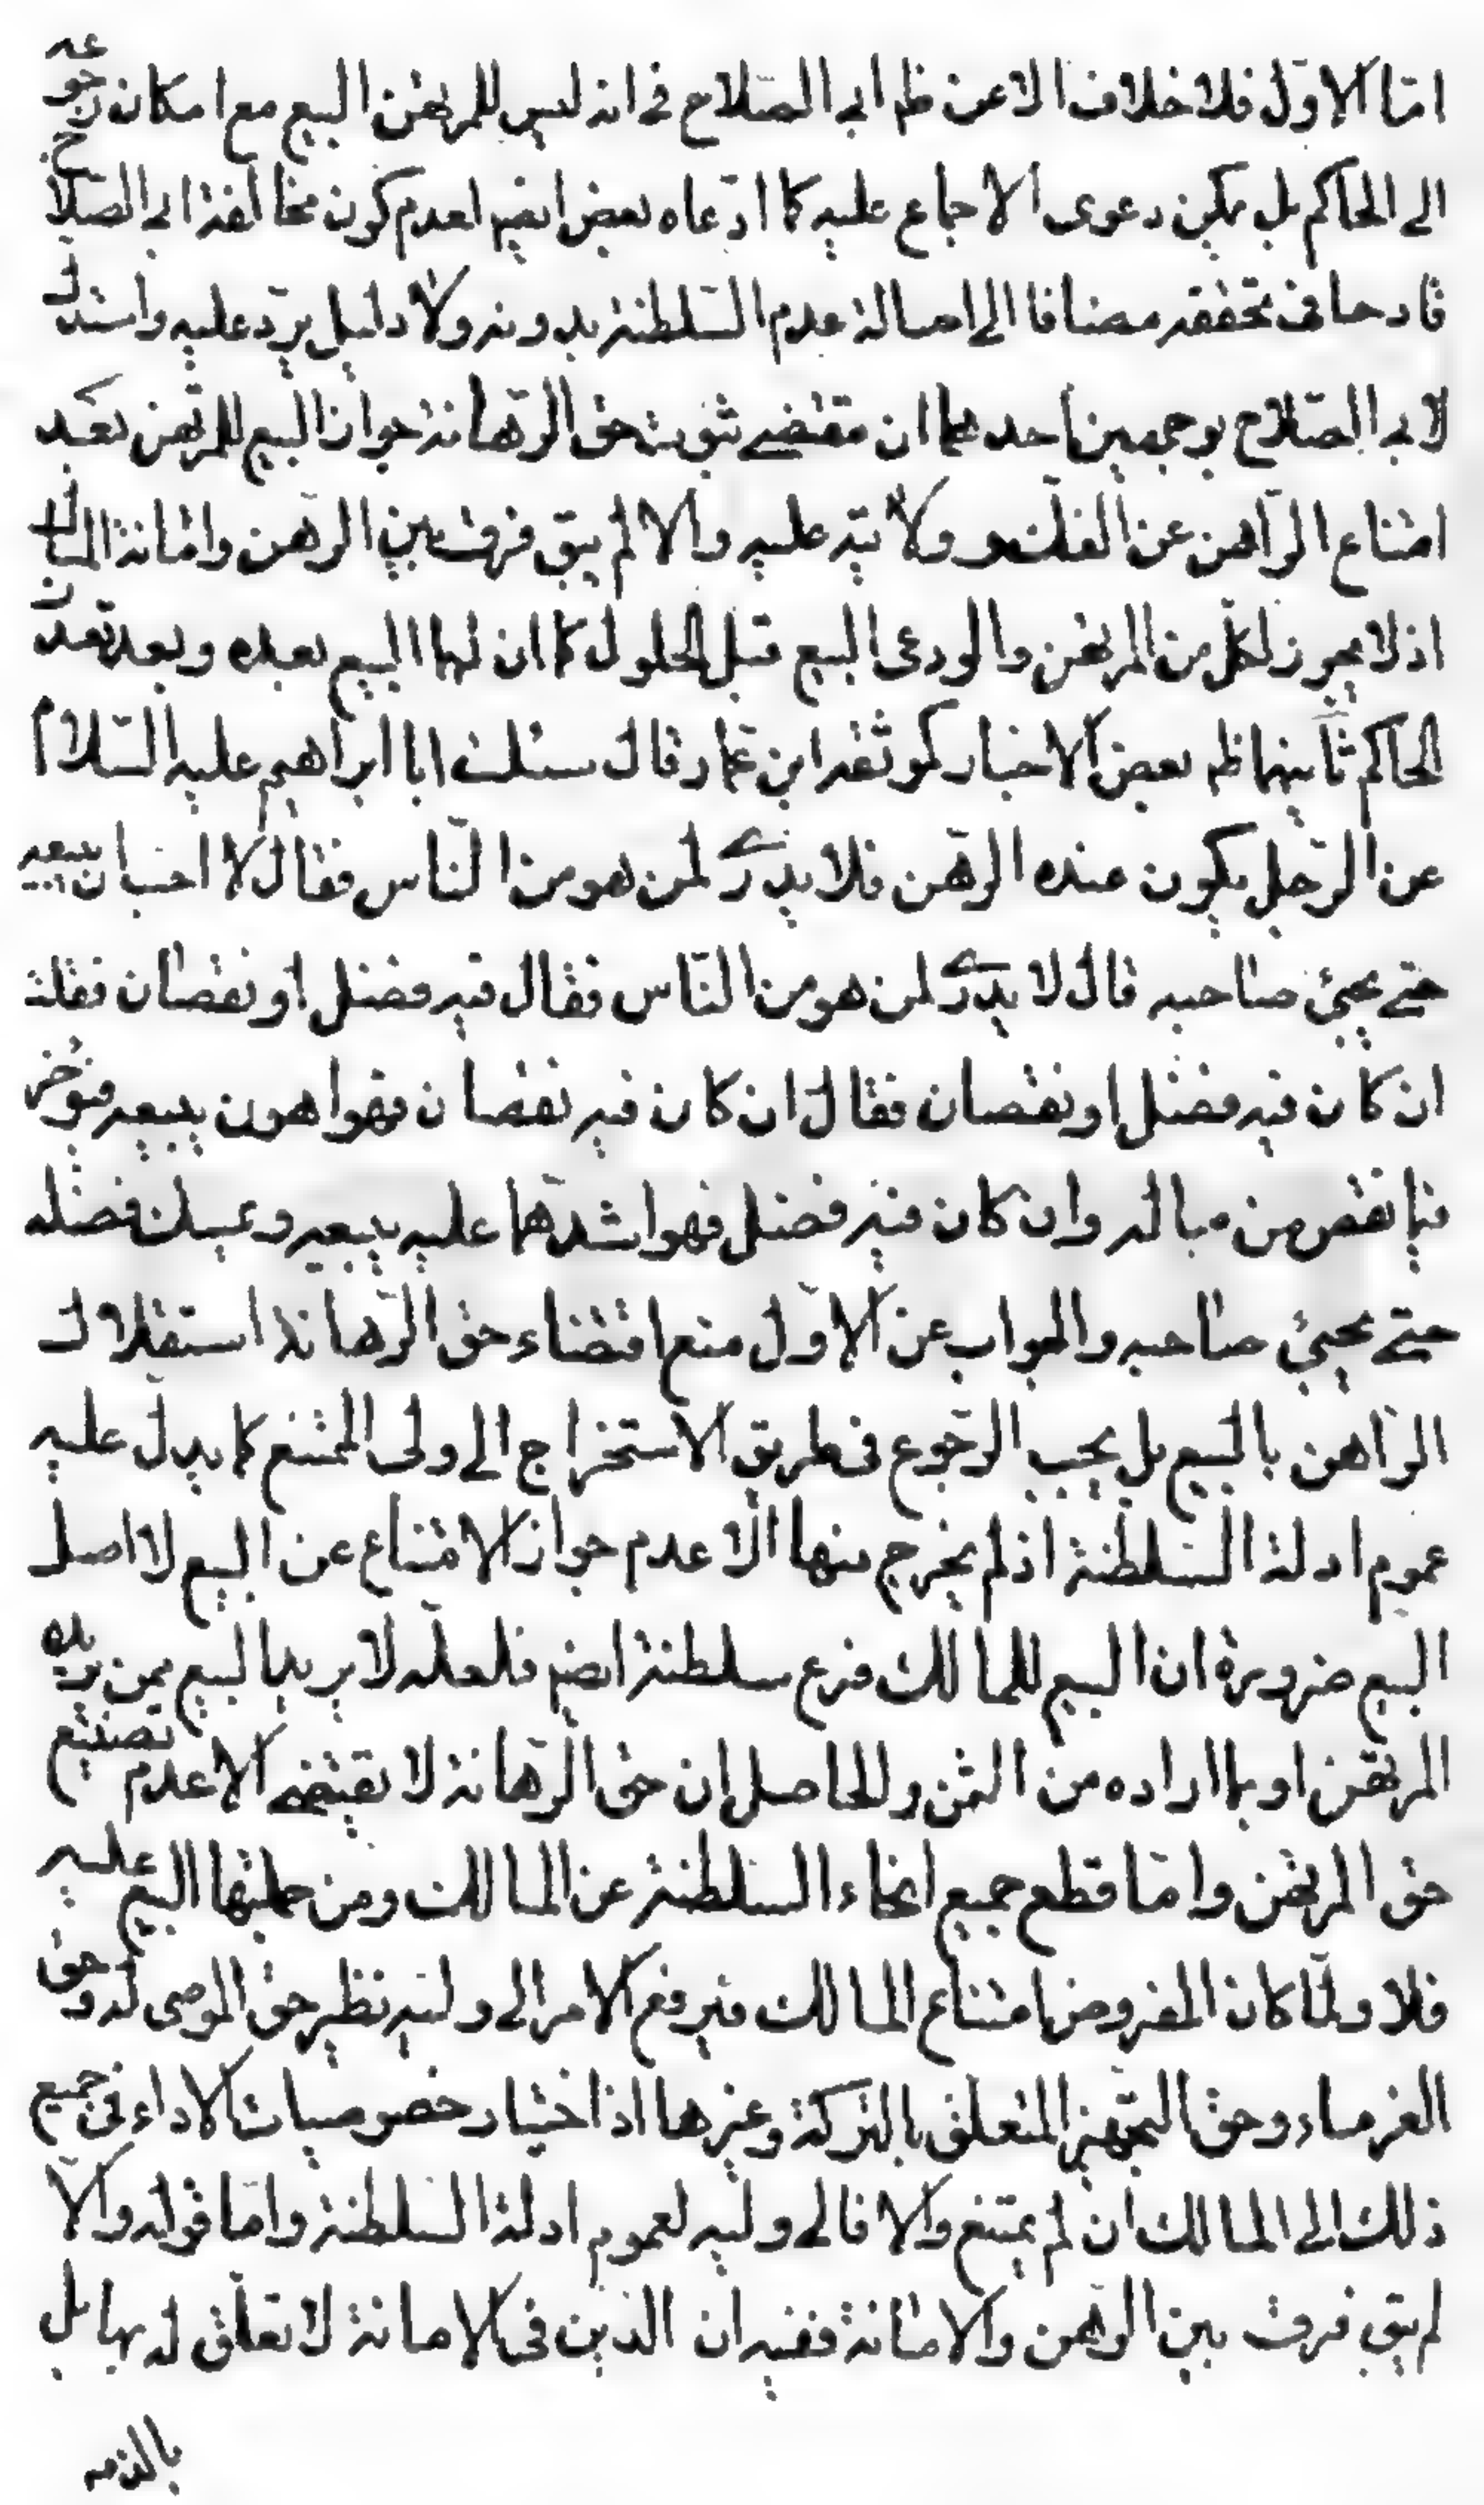 امّا الاوّل فلا خلاف الا عن ظم ابى الصّلاح فى انه ليس للمرتهن البيع مع امكان رجوعه
الى الحاكم بل يمكن دعوى الاجماع عليه كما ادّعاه بعض ايضم لعدم كون مخالفة ابى الصّلاح
قادحا فى تحققه مضافا الى اصالة عدم السّلطنة بدونه ولا دليل يردّ عليه واستدل
لابى الصّلاح بوجهين احدهما ان مقتضى ثبوت حق الرّهانة جواز البيع للمرتهن بعد
امتناع الرّاهن عن الفك ولايته عليه والا لم يبق فرق بين الرّهن وامانة المالك
اذ لا يجوز لكل من المرتهن والودعى البيع قبل الحلول كما ان لهما البيع بعده وبعد تعذر
الحاكم ثانيهما ظم بعض الاخبار كموثقة ابن عمار قال سئلت ابا ابراهيم عليه السّلام
عن الرّجل يكون عنده الرّهن فلا يدرى لمن هو من النّاس فقال لا احب ان يبيعه
حتى يجئ صاحبه قال لا يدرى لمن هو من النّاس فقال فيه فضل او نقصان فقلت
ان كان فيه فضل او نقصان فقال ان كان فيه نقصان فهو اهون يبيعه فيؤخر
فيما نقص من ماله وان كان فيه فضل فهو اشدّهما عليه يبيعه ويمسك فضله
حتى يجئ صاحبه والجواب عن الاوّل منع اقتضاء حق الرّهانة استقلال
الرّاهن بالبيع بل يجب الرّجوع فى طريق الاستخراج الى ولى الممتنع كما يدلّ عليه
عموم ادلة السّلطنة اذ لم يخرج منها الّا عدم جواز الامتناع عن البيع لا اصل
البيع ضرورة ان البيع للمالك فرع سلطنة ايضم فلعلّه لا يريد البيع بمن يريده
المرتهن او بما اراده من الثمن والحاصل ان حق الرّهانة لا يقتضى الا عدم تضييع
حق المرتهن وامّا قطع جميع انحاء السّلطنة عن المالك ومن جملتها البيع عليه
فلا ولمّا كان المفروض امتناع المالك فيرفع الامر الى وليّه نظير حق الموصى له وحق
الغرماء وحق التّجهيز المتعلّق بالتركة وغيرها اذ اختيار خصوصيات الاداء فى جميع
ذلك الى المالك ان لم يمتنع والا فالى وليه لعموم ادلة السّلطنة وامّا قوله والّا
لم يبق فرق بين الرّهن والامانة ففيه ان الدّين فى الامانة لا تعلّق له بها بل
بالذمه